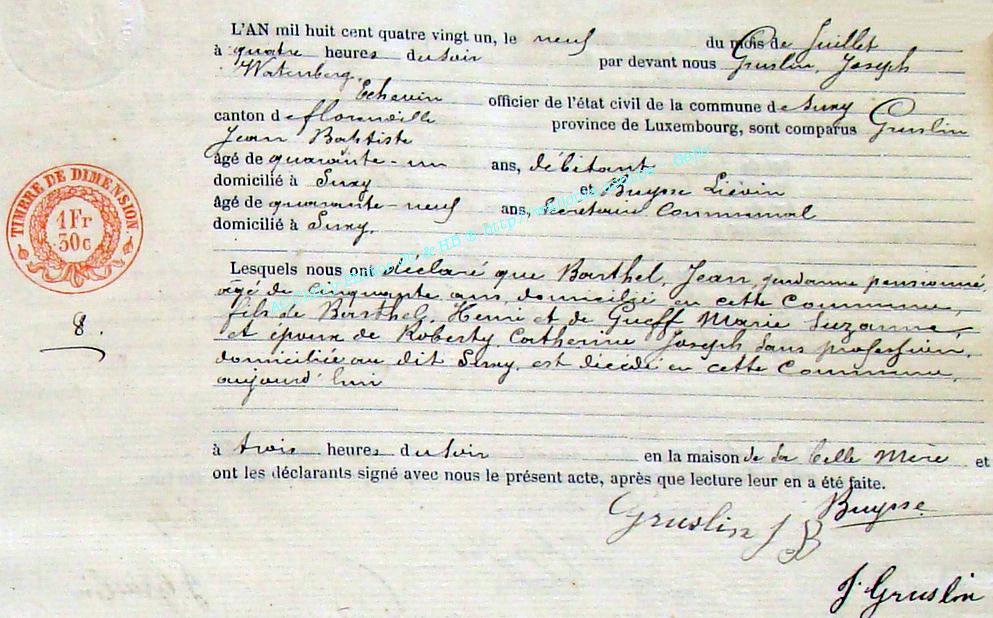 L'AN mil huit cent quatre vingt un, le neuf du mois de Juillet
à quatre heures du soir par devant nous Gruslin, Joseph
Watenberg,
Echevin officier de l'état civil de la commune de Suxy
canton de florenville province de Luxembourg, sont comparus Gruslin
Jean Baptiste
âgé de quarante-un ans, débitant
domicilié à Suxy et Buysse Liévin
âgé de quarante-neuf ans, Secrétaire Communal
domicilié à Suxy,
TIMBRE DE DIMENSION
1 Fr
50 c
Lesquels nous ont déclaré que Barthel, Jean, gendarme pensionné,
agé de cinquante ans, domicilié en cette Commune,
8.
fils de Barthel, Henri et de Gueff Marie Suzanne,
et époux de Roberty Catherine Joseph sans profession,
domiciliée au dit Suxy, est décédé en cette Commune,
aujourd'hui
à trois heures du soir en la maison de sa belle Mère et
ont les déclarants signé avec nous le présent acte, après que lecture leur en a été faite.
Buysse
Gruslin J B
J. Gruslin